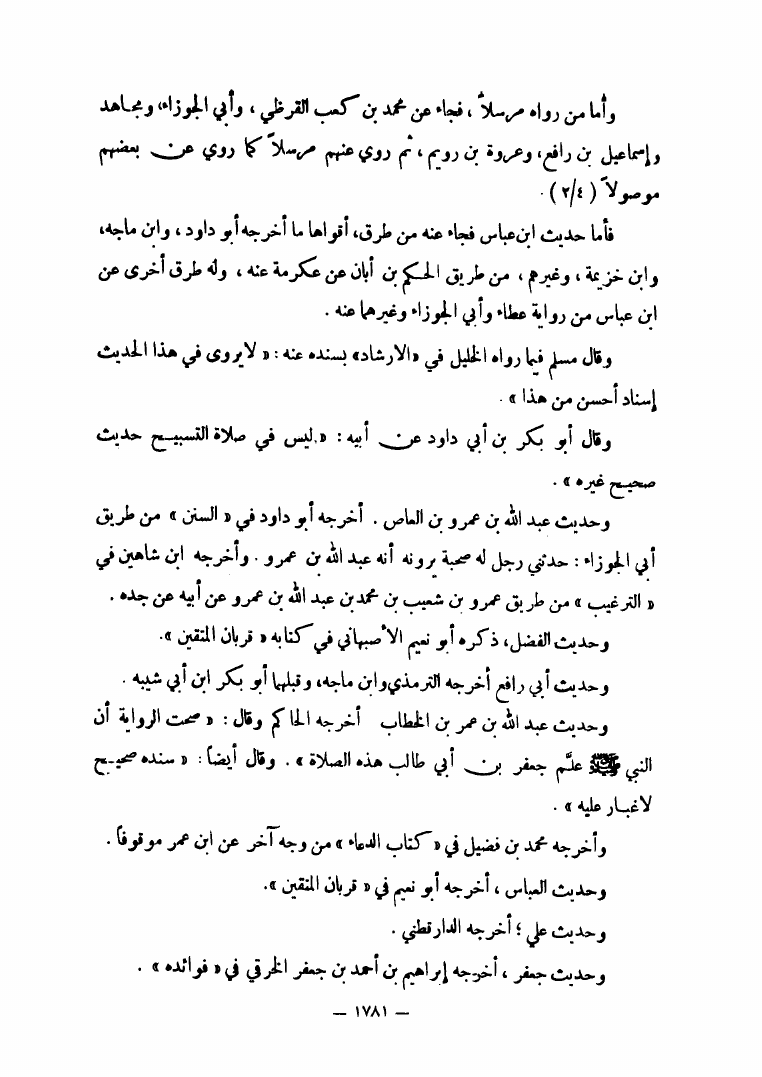 وأما من رواه مرسلاً ، فجاء عن محمد بن كعب القرظي ، وأبي الجوزاء ، ومجاهد
وإسماعيل بن رافع، وعروة بن رويم ، ثم روي عنهم مرسلاً كما روي عن بعضهم
موصولاً ( ٢/٤ ) .
فأما حديث ابن عباس فجاء عنه من طرق، أقواها ما أخرجه أبو داود ، وابن ماجه،
وابن خزيمة ، وغيرهم ، من طريق الحكم بن أبان عن عكرمة عنه ، وله طرق أخرى عن
ابن عباس من رواية عطاء وأبي الجوزاء وغيرهما عنه .
وقال مسلم فيما رواه الخليل في «الارشاد» بسنده عنه : « لا يروى في هذا الحديث
إسناد أحسن من هذا » .
وقال أبو بكر بن أبي داود عن أبيه : « ليس في صلاة التسبيح حديث
صحيح غيره » .
وحديث عبد الله بن عمرو بن العاص . أخرجه أبو داود في « السنن » من طريق
أبي الجوزاء : حدثني رجل له صحبة يرونه أنه عبد الله بن عمرو . وأخرجه ابن شاهين في
« الترغيب » من طريق عمرو بن شعيب بن محمد بن عبد الله بن عمرو عن أبيه عن جده .
وحديث الفضل، ذكره أبو نعيم الأصبهاني في كتابه « قربان المتقين ».
وحديث أبي رافع أخرجه الترمذي وابن ماجه، وقبلهما أبو بكر ابن أبي شيبه .
وحديث عبد الله بن عمر بن الخطاب أخرجه الحاكم وقال : « صحت الرواية أن
النبي ﷺ علَّم جعفر بن أبي طالب هذه الصلاة » . وقال أيضاً : « سنده صحيح
لا غبار عليه » .
وأخرجه محمد بن فضيل في « كتاب الدعاء » من وجه آخر عن ابن عمر موقوفاً .
وحديث العباس ، أخرجه أبو نعيم في « قربان المتقين ».
وحديث علي ؛ أخرجه الدارقطني .
وحديث جعفر ، أخرجه إبراهيم بن أحمد بن جعفر الخرقي في « فوائده » .
— ١٧٨١ —